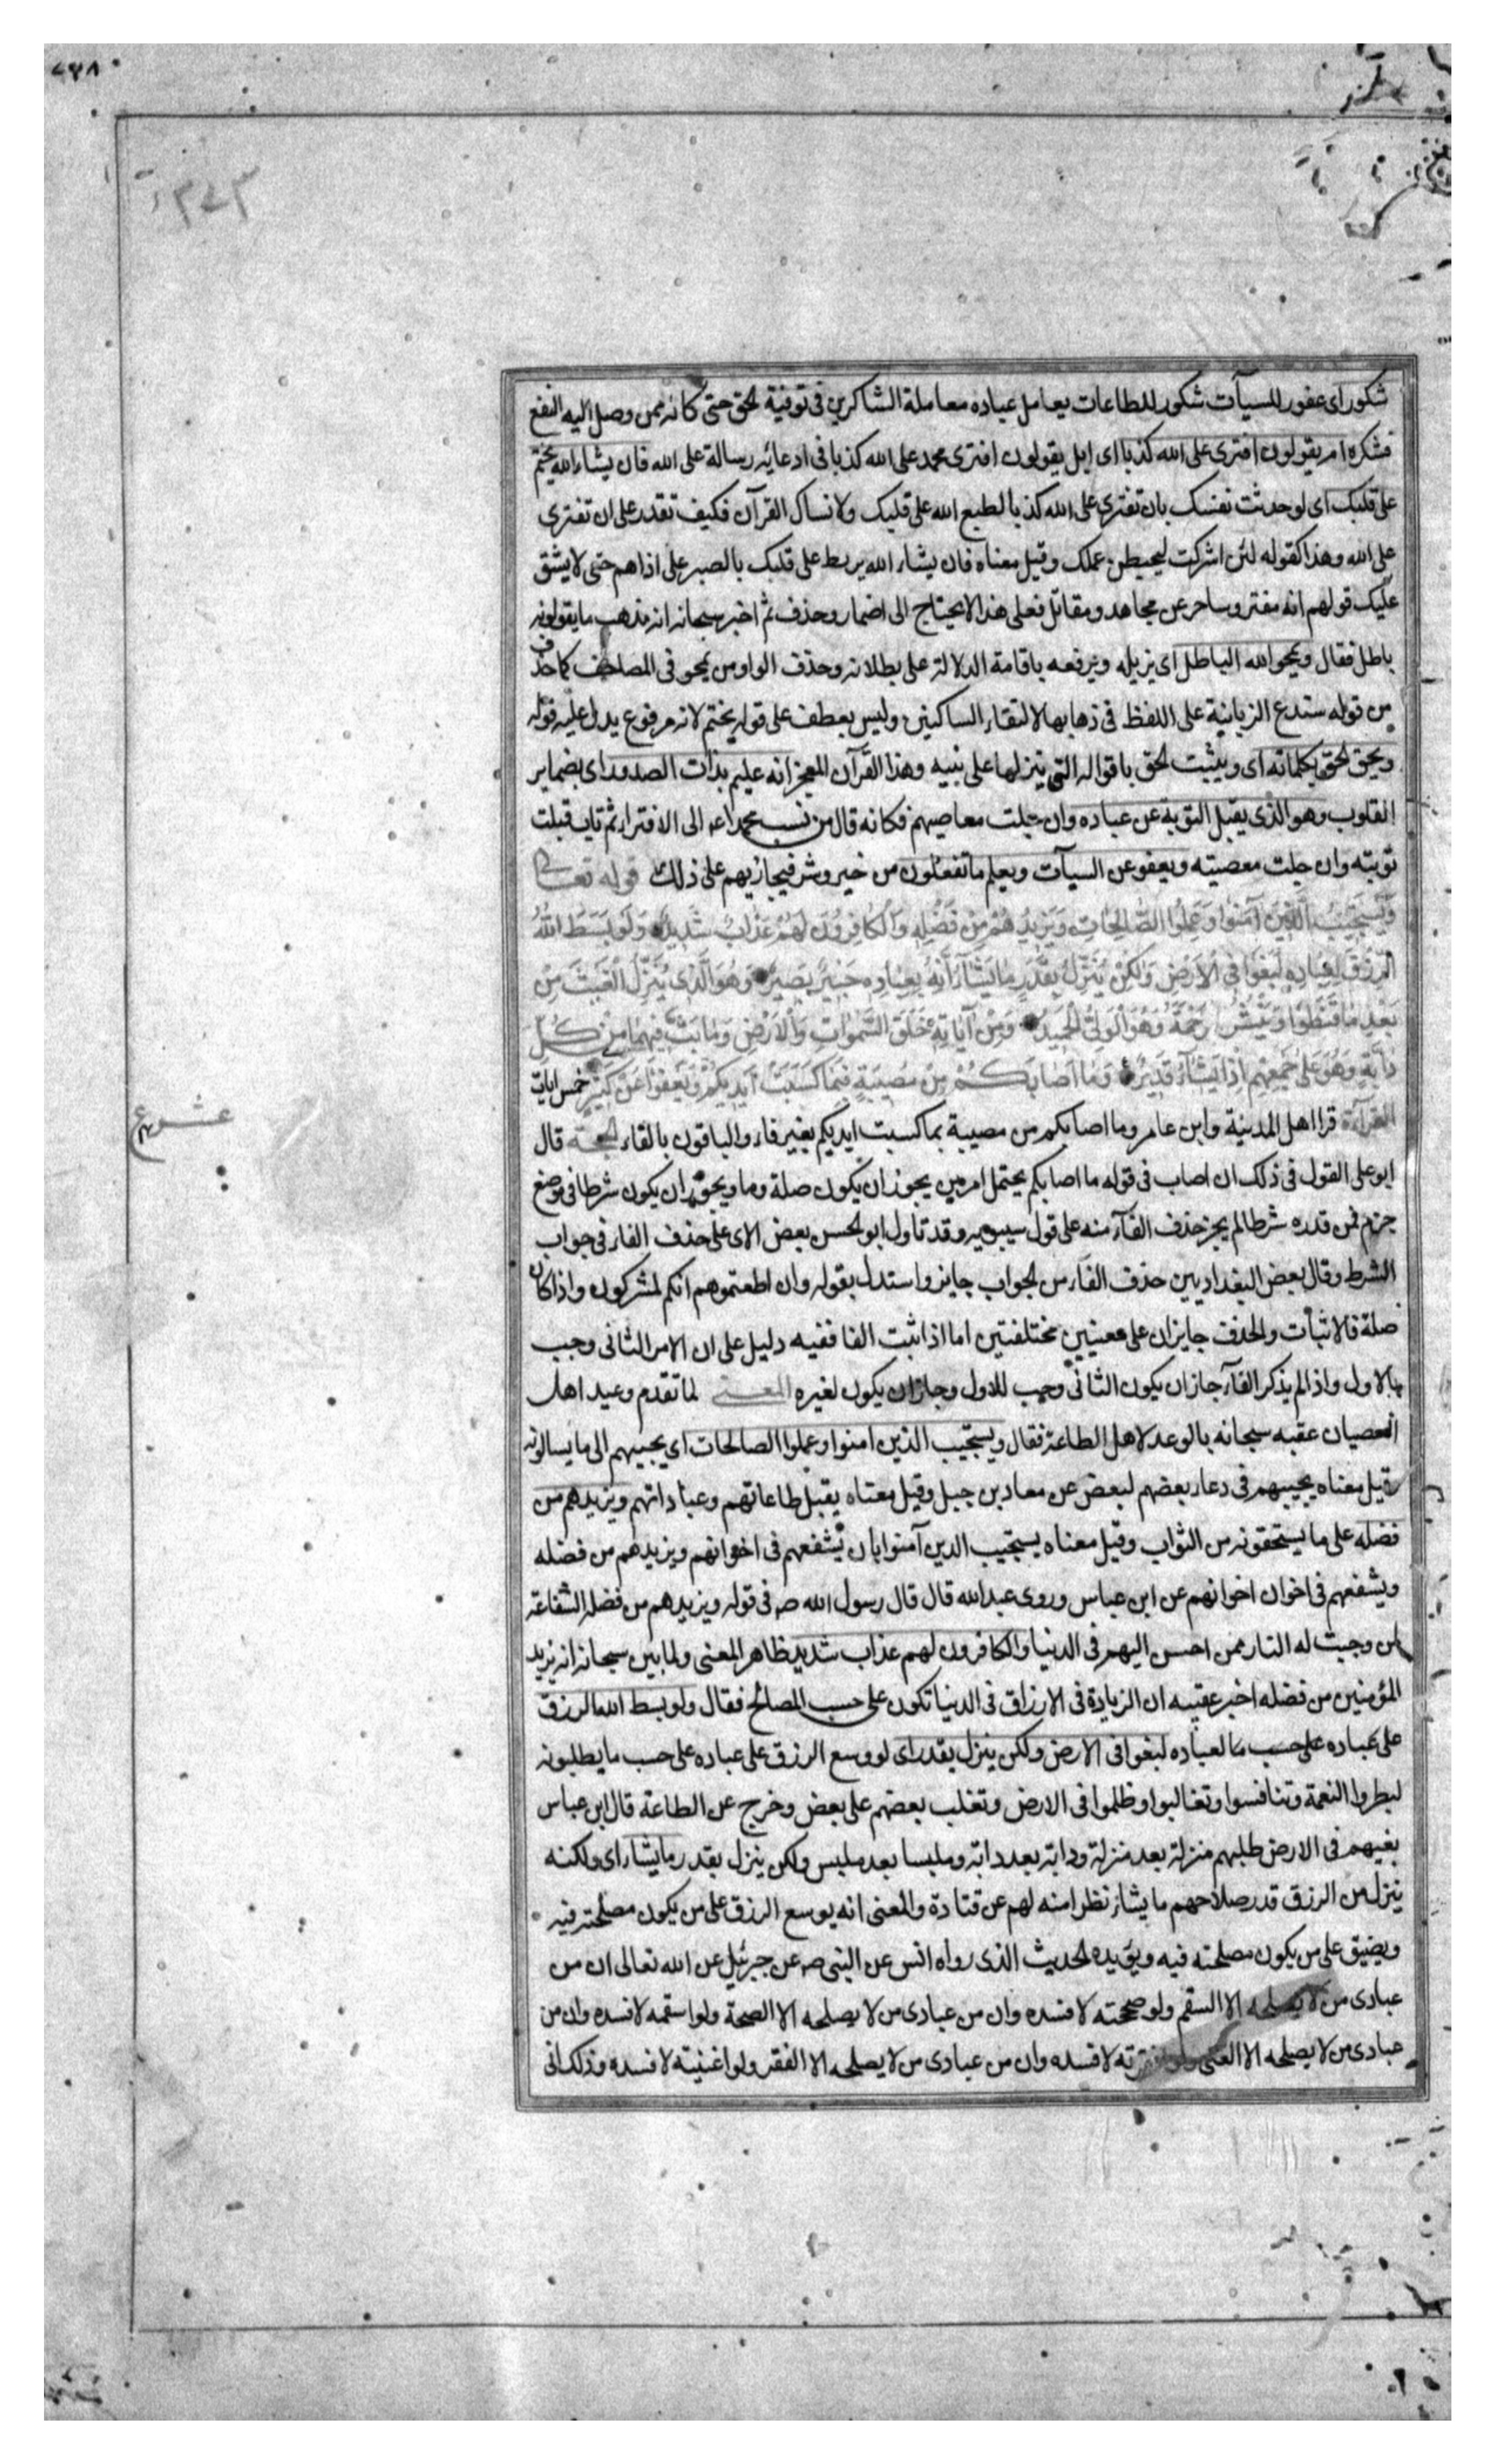 ٤٣٨
شكور اى غفور للسيآت شكور للطاعات يعامل عباده معاملة الشاكرين فى توفية الحق حتى كانه ممن وصل اليه النفع
فشكره ام يقولون افترى على الله كذبا اى ابل يقولون افترى محمد على الله كذبا فى ادعائه رسالة على الله فان يشاء الله يختم
على قلبك اى لو حدثت نفسك بان تفترى على الله كذبا لطبع الله على قلبك ولانساك القرآن فكيف تقدر على ان تفترى
على الله وهذا كقوله لئن اشركت ليحبطن عملك وقيل معناه فان يشاء الله يربط على قلبك بالصبر على اذاهم حتى لا يشق
عليك قولهم انه مفتر وساحر عن مجاهد ومقاتل فعلى هذا لا يحتاج الى اضمار وحذف ثم اخبر سبحانه انه يذهب ما يقولونه
باطل فقال ويمحو الله الباطل اى يزيله ويرفعه باقامة الدلالة على بطلانه وحذف الواو من يمحو فى المصاحف كما حذف
من قوله سندع الزبانية على اللفظ فى ذهابها لالتقاء الساكنين وليس بعطف على قوله يختم لانه مرفوع يدل عليه قوله
ويحق الحق بكلماته اى ويثبت الحق باقواله التى ينزلها على نبيه وهذا القرآن المعجز انه عليم بذات الصدور اى بضماير
القلوب وهو الذى يقبل التوبة عن عباده وان جلت معاصيهم فكانه قال من نسب محمدا عه الى الافتراء ثم تاب قبلت
توبته وان جلت معصيته ويعفو عن السيآت ويعلم ما تفعلون من خير وشر فيجازيهم على ذلك قوله تعالى
وَيَسْتَجِيبُ الَّذِينَ آمَنُوا وَعَمِلُوا الصَّالِحَاتِ وَيَزِيدُهُمْ مِنْ فَضْلِهِ وَالْكَافِرُونَ لَهُمْ عَذَابٌ شَدِيدٌ وَلَوْ بَسَطَ اللهُ
الرِّزْقَ لِعِبَادِهِ لَبَغَوْا فِي الْأَرْضِ وَلَكِنْ يُنَزِّلُ بِقَدَرٍ مَا يَشَآءُ إِنَّهُ بِعِبَادِهِ خَبِيرٌ بَصِيرٌ وَهُوَ الَّذِي يُنَزِّلُ الْغَيْثَ مِنْ
بَعْدِ مَا قَنَطُوا وَيَنْشُرُ رَحْمَتَهُ وَهُوَ الْوَلِيُّ الْحَمِيدُ وَمِنْ آيَاتِهِ خَلْقُ السَّمَوَاتِ وَالْأَرْضِ وَمَا بَثَّ فِيهِمَا مِنْ كُلِّ
دَابَّةٍ وَهُوَ عَلَى جَمْعِهِمْ إِذَا يَشَآءُ قَدِيرٌ وَمَا أَصَابَكُمْ مِنْ مُصِيبَةٍ فَبِمَا كَسَبَتْ أَيْدِيكُمْ وَيَعْفُوا عَنْ كَثِيرٍ خمس ايات
القرآءة قرا اهل المدينة وابن عامر وما اصابكم من مصيبة بما كسبت ايديكم بغير فاء والباقون بالفاء الحجة قال
عشر
ابو على القول فى ذلك ان اصاب فى قوله ما اصابكم يحتمل امرين يجوز ان يكون صلة وما ويجوز ان يكون شرطا فى موضع
جزم فمن قدره شرطا لم يجز حذف الفآء منه على قول سيبويه وقد تاول ابو الحسن بعض الاى على حذف الفاء فى جواب
الشرط وقال بعض البغداديين حذف الفآء من الجواب جايز واستدل بقوله وان اطعتموهم انكم لمشركون واذا كان
صلة فالاثبات والحذف جايزان على معنيين مختلفتين اما اذا ثبت الفا ففيه دليل على ان الامر الثانى وجب
بالاول واذا لم يذكر الفآء جاز ان يكون الثانى وجب للاول وجاز ان يكون لغيره المعنى لما تقدم وعيد اهل
العصيان عقبه سبحانه بالوعد لاهل الطاعة فقال ويستجيب الذين امنوا وعملوا الصالحات اى يجيبهم الى ما يسالونه
وقيل معناه يجيبهم فى دعاء بعضهم لبعض عن معاد بن جبل وقيل معناه يقبل طاعاتهم وعباداتهم ويزيدهم من
فضله على ما يستحقونه من الثواب وقيل معناه يستجيب الدين آمنوا بان يشفعهم فى اخوانهم ويزيدهم من فضله
ويشفعهم فى اخوان اخوانهم عن ابن عباس وروى عبد الله قال قال رسول الله ص فى قوله ويزيدهم من فضله الشفاعة
لمن وجبت له النار ممن احسن اليهم فى الدنيا والكافرون لهم عذاب شديد ظاهر المعنى ولما بين سبحانه انه يزيد
المؤمنين من فضله اخبر عقيبه ان الزيادة فى الارزاق فى الدنيا تكون على حسب المصالح فقال ولو بسط الله الرزق
على عباده على حسب ما لعباده لبغوا فى الارض ولكن ينزل بقدر اى لو وسع الرزق على عباده على حسب ما يطلبونه
لبطروا النعمة وتنافسوا وتغالبوا وظلموا فى الارض وتغلب بعضهم على بعض وخرج عن الطاعة قال ابن عباس
بغيهم فى الارض طلبهم منزلة بعد منزلة ودابة بعد دابة وملبسا بعد ملبس ولكن ينزل بقدر ما يشاء اى ولكنه
ينزل من الرزق قدر صلاحهم ما يشاء نظرا منه لهم عن قتادة والمعنى انه يوسع الرزق على من يكون مصلحته فيه
ويضيق على من يكون مصلحته فيه ويؤيده الحديث الذى رواه انس عن النبى ص عن جبرئيل عن الله تعالى ان من
عبادى من لا يصلحه الا السقم ولو صححته لافسده وان من عبادى من لا يصلحه الا الصحة ولو اسقمه لافسده وان من
عبادى من لا يصلحه الا الغنى ولو افقرته لافسده وان من عبادى من لا يصلحه الا الفقر ولو اغنيته لافسده وذلك انى